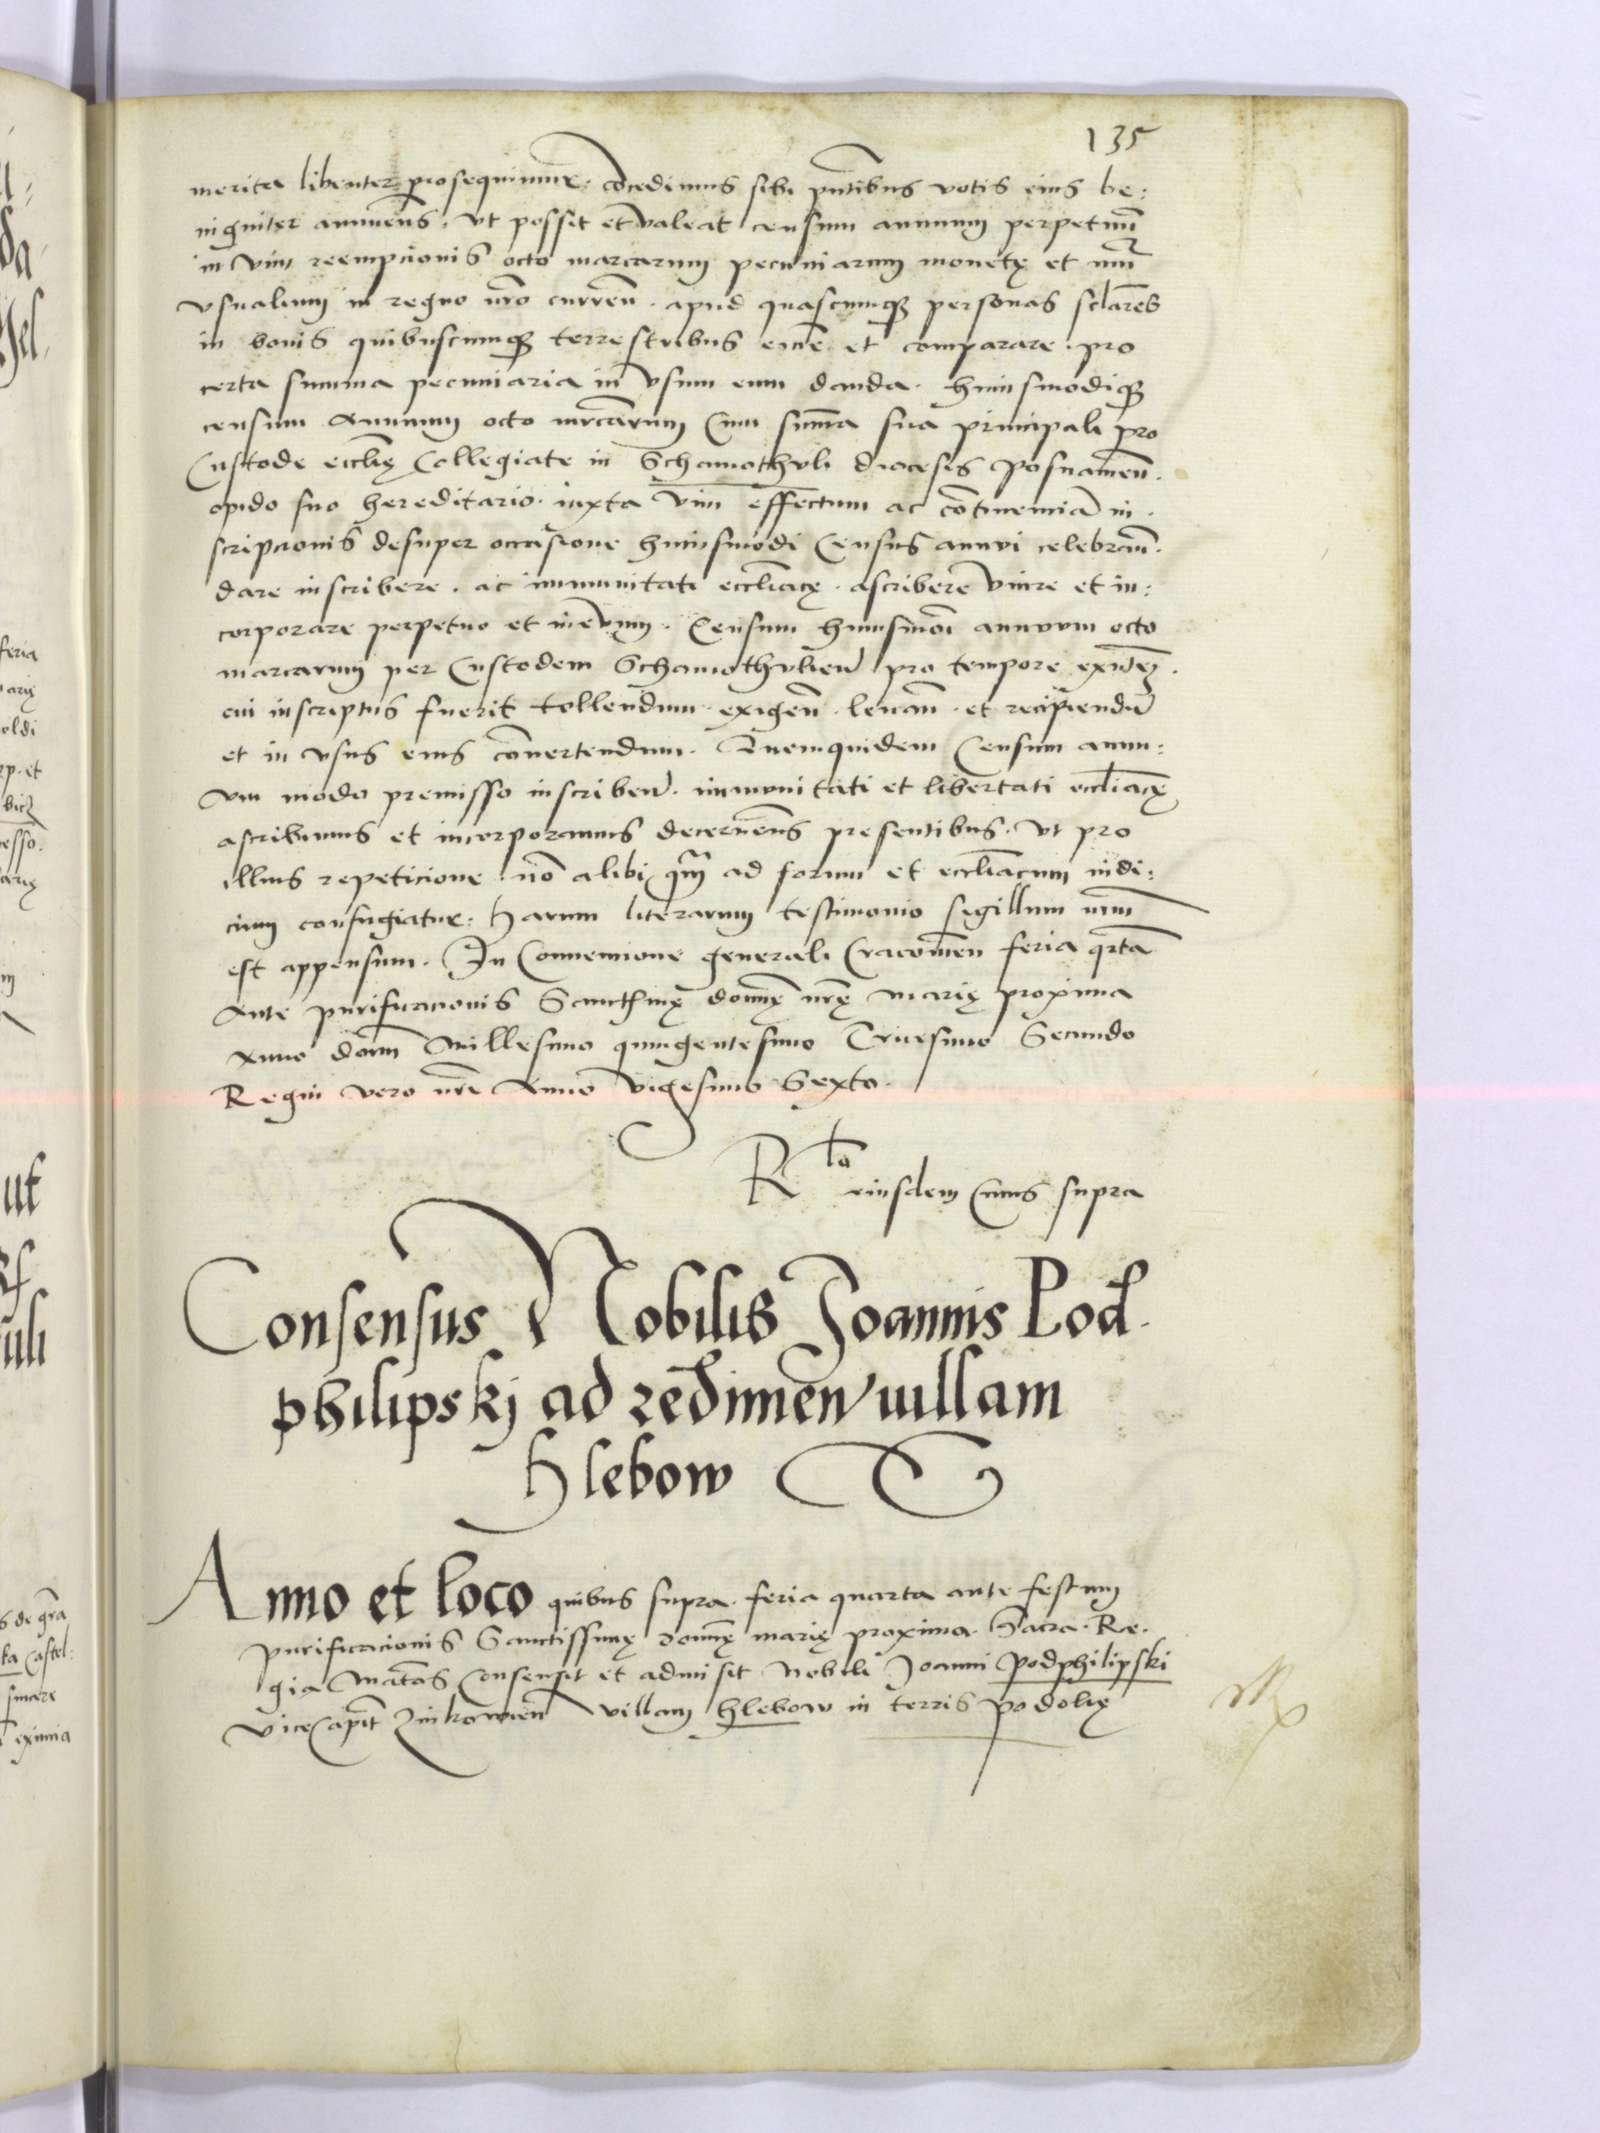 135
merita libenter prosequimur. cōcedimus sibi pn̄tibus votis eius be:
nigniter annuen̄s. Vt possit et valeat censum annuum perpetuū
in vim reempcionis octo marcarum pecuniarum monetę et nūi
vsualium in regno nr̄o curren̄. apud quascumq̨ personas sc̄lares
in bonis quibuscumq̨ terrestribus emē et comparare. pro
certa summa pecuniaria in vsum eum danda. huiusmodiq̨
censum Annuum octo mrcarum Cum sum̄a sua principali pro
Custode eccl̄ię Collegiate in Schamothuli diocesis Posnanien̄.
opido suo hereditario. iuxta vim effectum ac cōtinenciā in.
scripcionis desuper occasione huiusmodi Census annui celebran̄.
dare inscribere. ac immunitati eccl̄iacę. ascribere vnire et in:
corporare perpetuo et in ęvum. Censum huiusmōi annuum octo
marcarum per Custodem Schamothulien̄ pro tempore exn̄tem.
cui inscriptus fuerit tollendum. exigen̄. leuan̄. et recipiendū
et in vsus eius cōuertendum. Quemquidem Censum annu:
vm modo premisso inscriben̄. immunitati et libertati eccl̄iacę
ascribimus et incorporamus decernen̄s presentibus. Vt pro
illius repeticione nō alibi q̄m ad forum et eccl̄iacum iudi:
cium confugiatur. Harum literarum testimonio sigillum nr̄m
est appensum. In Conuencione generali Cracouien̄ feria q̄rta
Ante purificacionis Sanctimę domnę nr̄ę marię proxima
Anno dōm Millesimo quingentesimo Tricesimo Secundo
Regni vero nr̄i Anno vigesimo Sexto.
Rl̄o eiusdem Cuius supra
Consensus Nobilis Joannis Pod.
philipskj ad redimen̄ uillam
Hlebow
Anno et loco quibus supra. feria quarta ante festum
purificacionis Sanctissimę domnę marię proxima. Sacra. Re.
gia Mātas Consensit et admisit Nobili Joanni Podphilipski
ViceCapit̄ Zinkowien̄ Villam Hlebow in terris Podolię